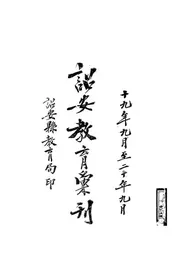 十九年九月至二十年九月
詔安教育彙刊
詔安縣教育局印